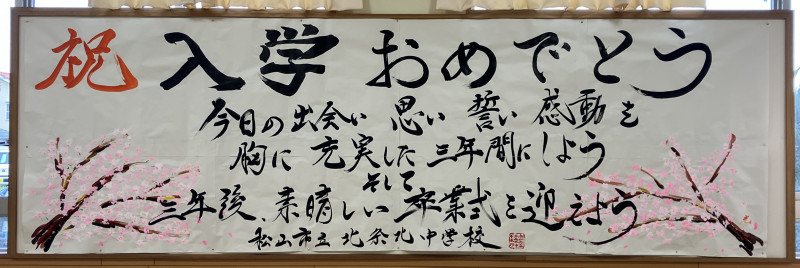 祝 入学 おめでとう
今日の出会い 思い 誓い 感動を
胸に 充実した 三年間にしよう
そして
三年後、素晴しい 卒業式を迎えよう
松山市立 北条北中学校